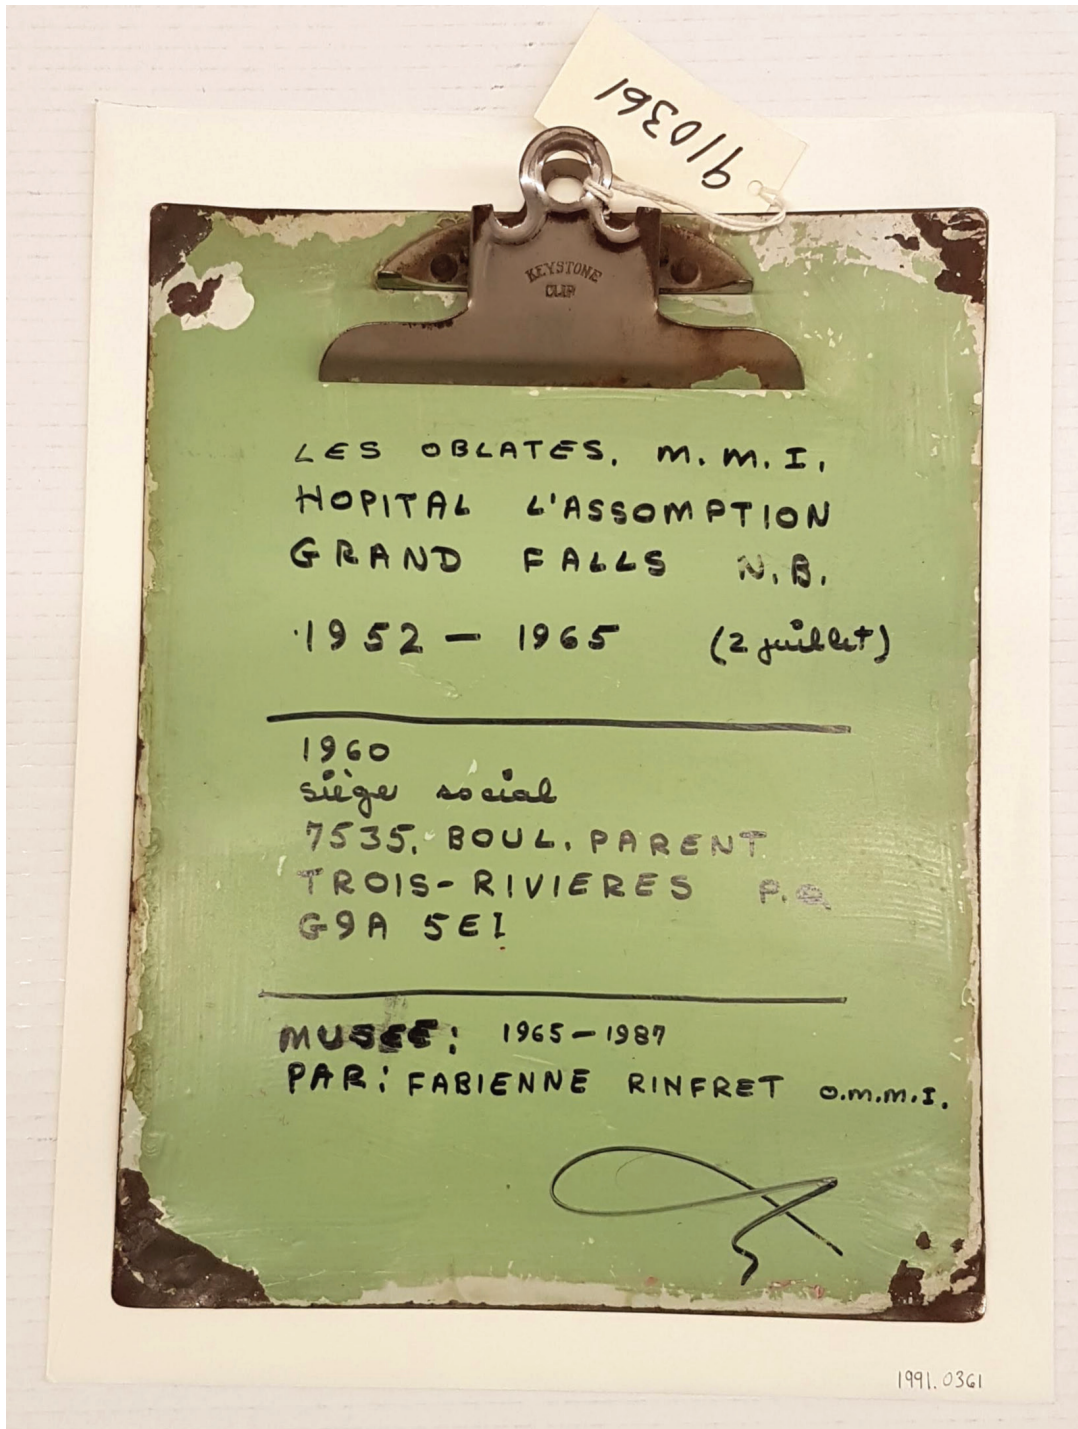 910361
KEYSTONE
CLIP
LES OBLATES, M. M. I.
HOPITAL L'ASSOMPTION
GRAND FALLS N.B.
1952 — 1965 (2 juillet)
1960
siège social
7535, BOUL. PARENT
TROIS-RIVIERES P.Q
G9A 5E1
MUSEE: 1965-1987
PAR: FABIENNE RINFRET O.M.M.I.
1991.0361